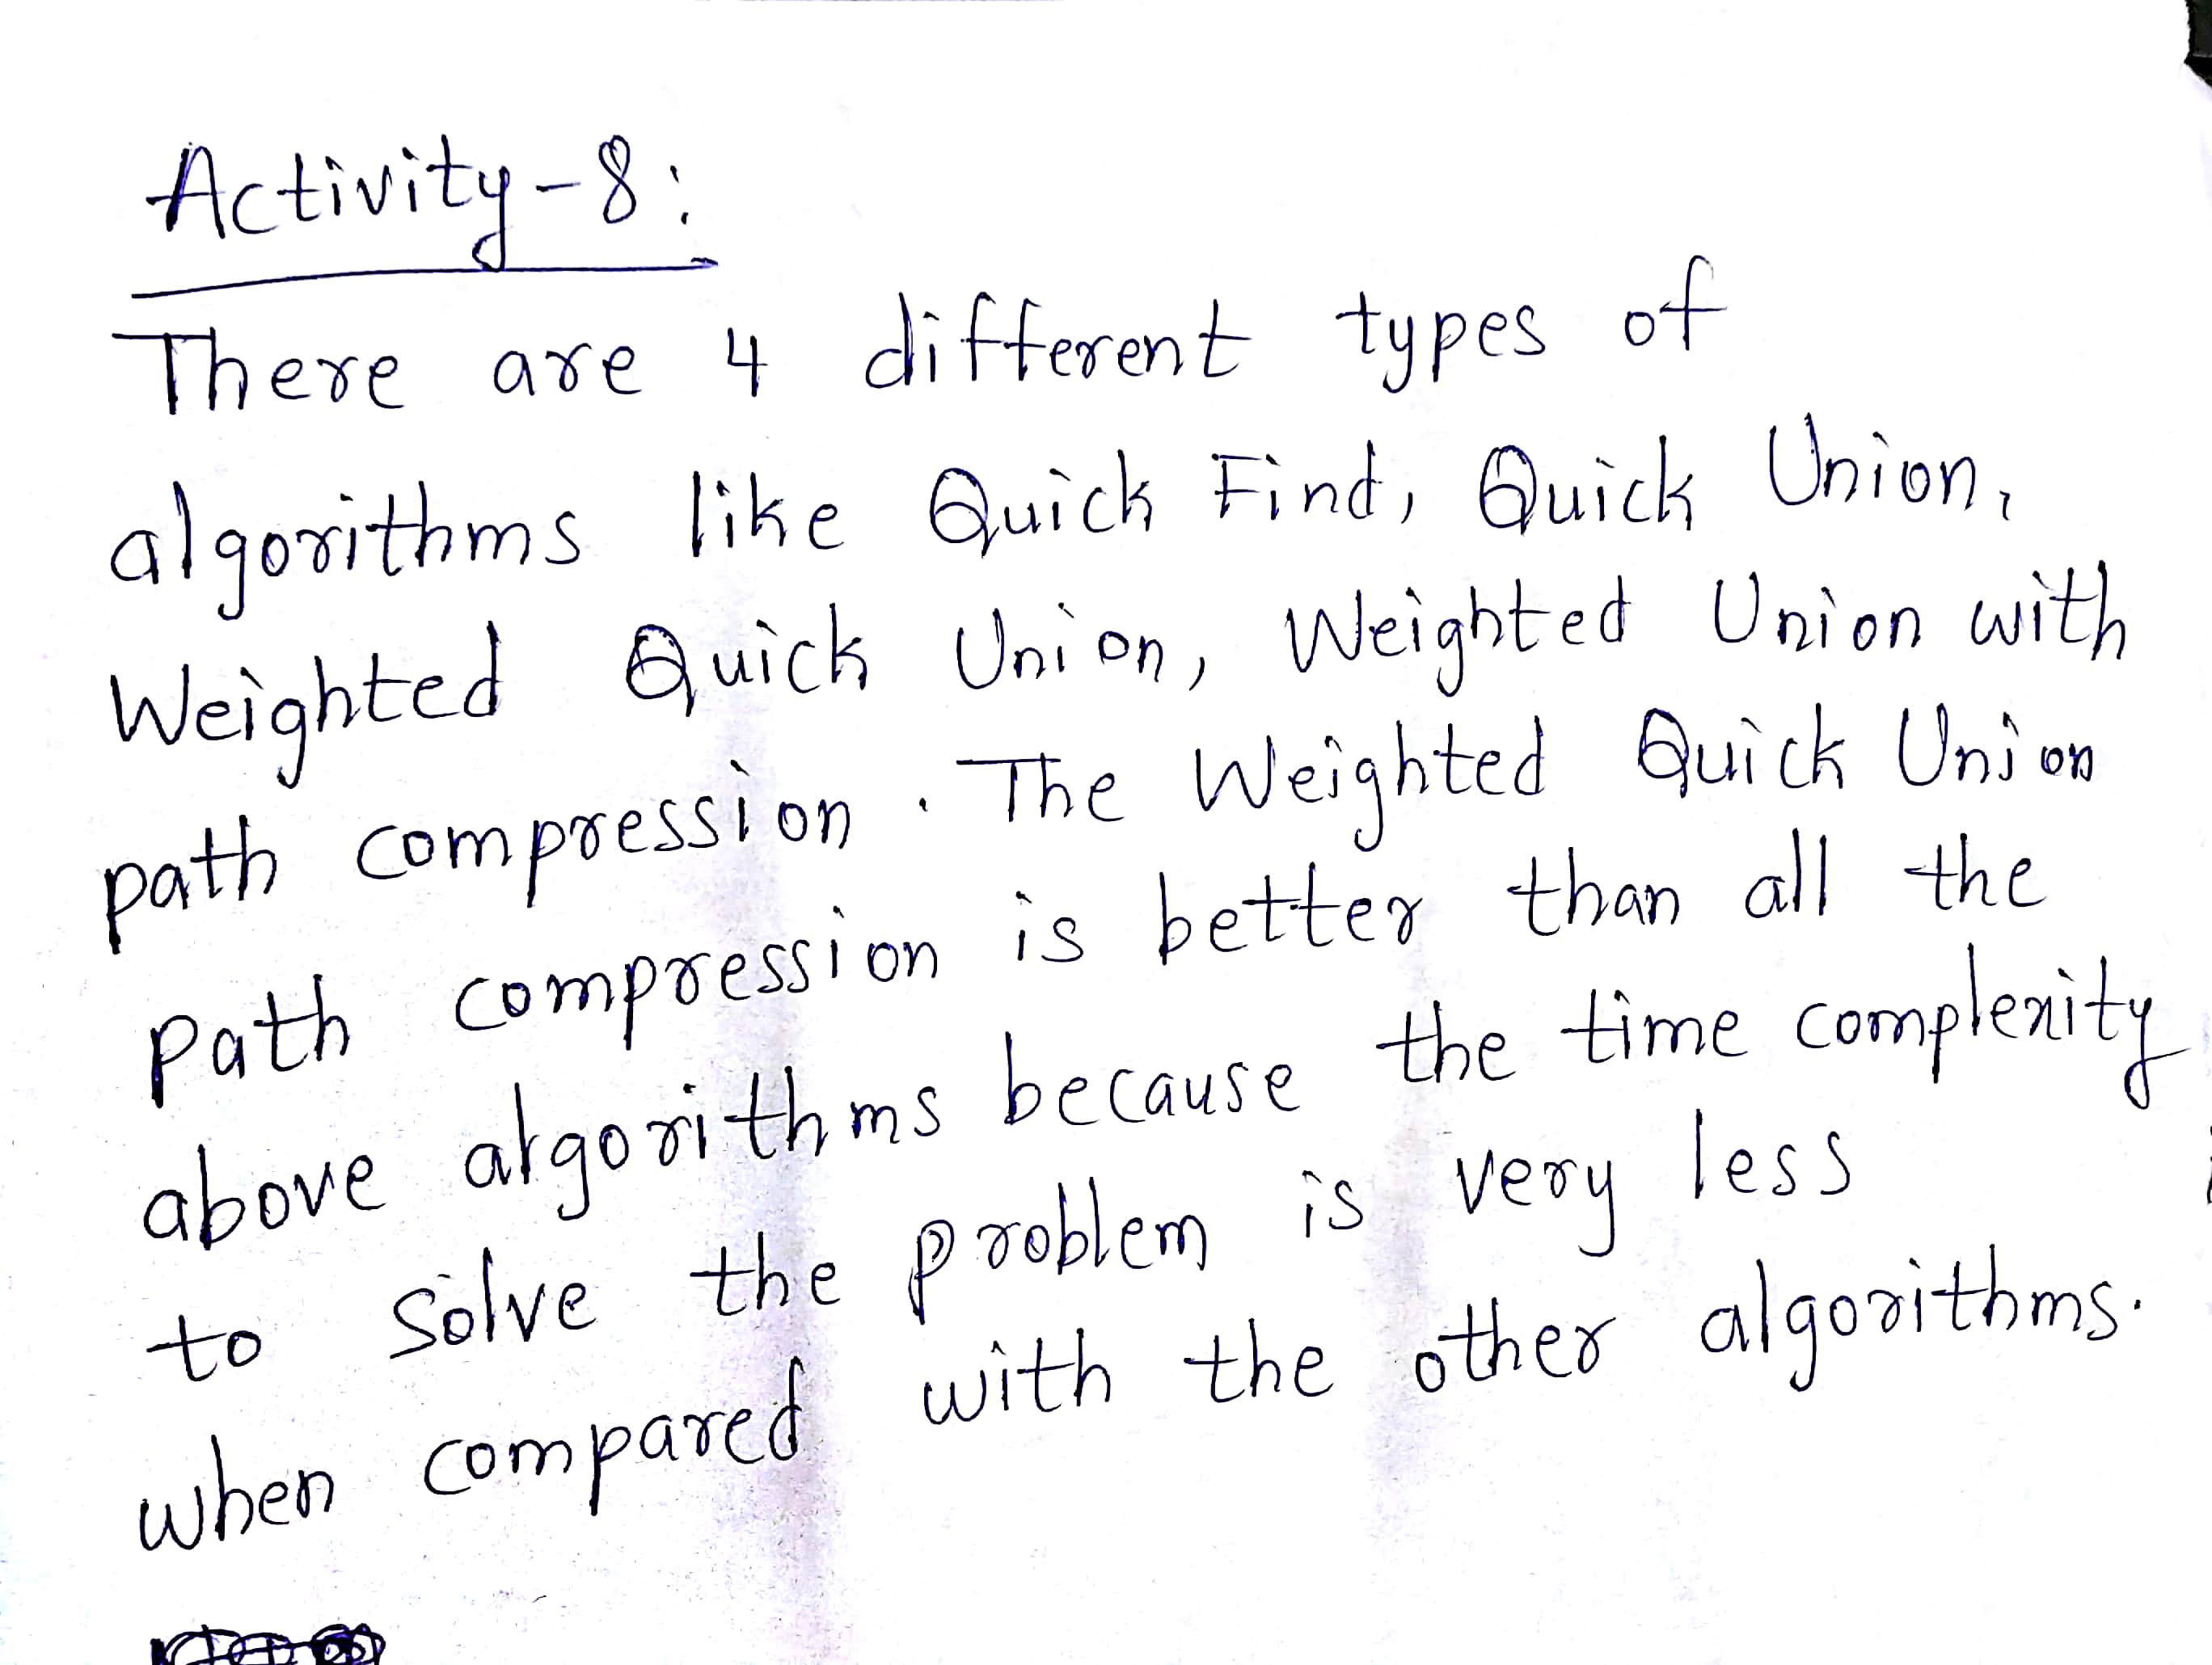 Activity-8:
There are 4 different types of
algorithms like Quick Find, Quick Union,
Weighted Quick Union, Weighted Union with
path compression. The Weighted Quick Union
path compression is better than all the
above algorithms because the time complexity
to solve the problem is very less
when compared with the other algorithms.